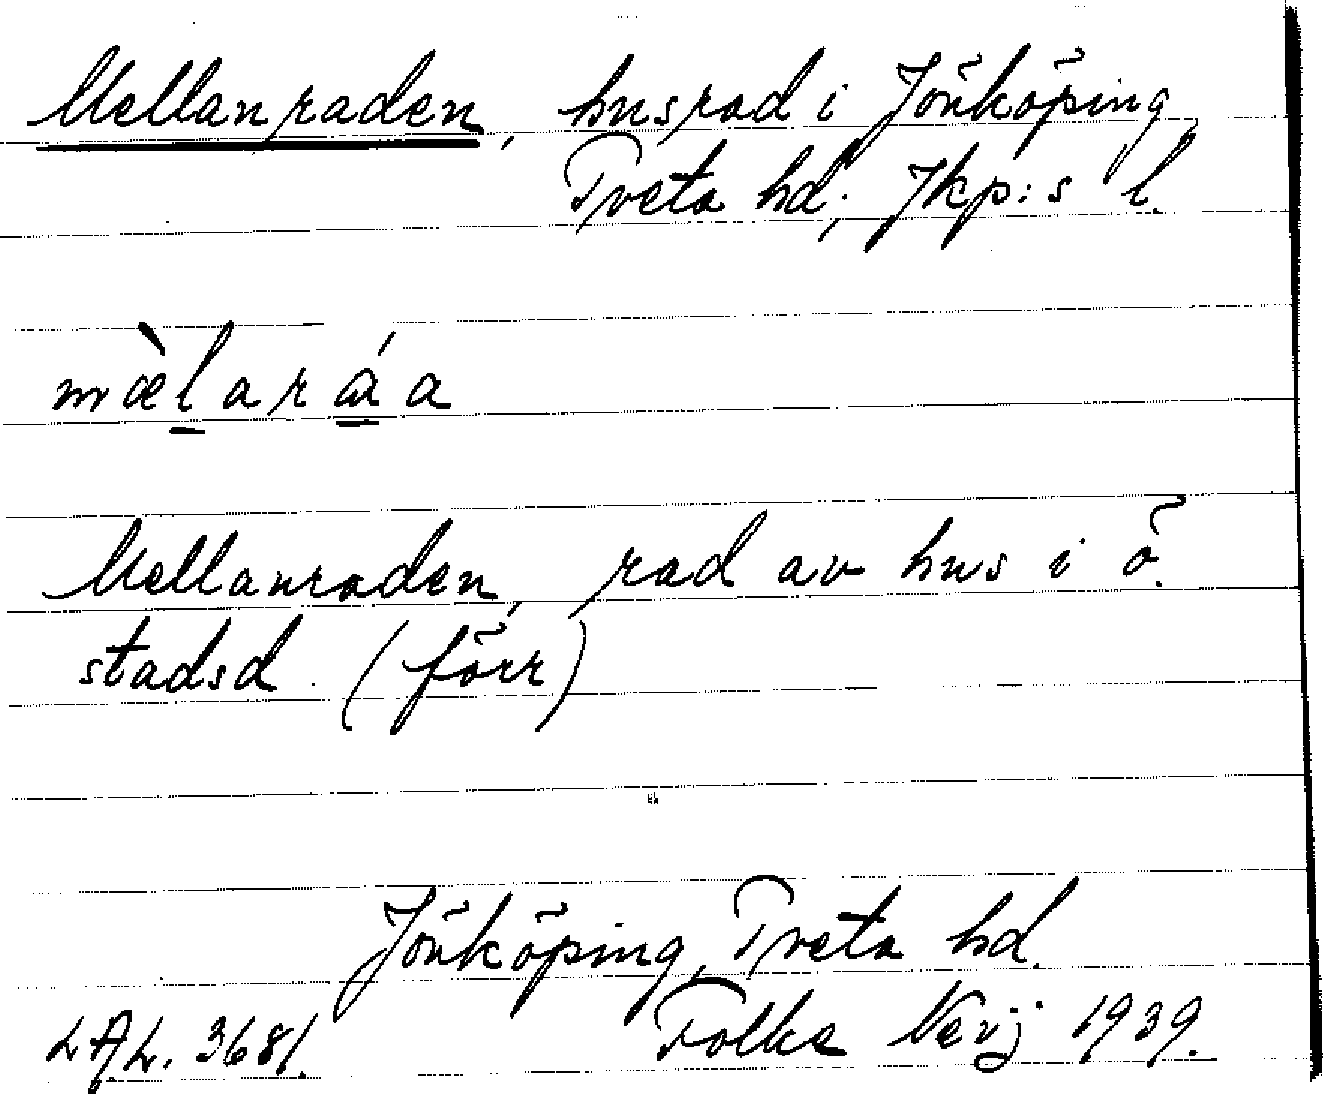 Mellanraden, husrad i Jönköping,
Tveta hd, Jkp:s l.
mæ̀laráa
Mellanraden, rad av hus i ö.
stadsd. (förr)
Jönköping, Tveta hd.
LAL. 3681. Folke Nevj 1939.